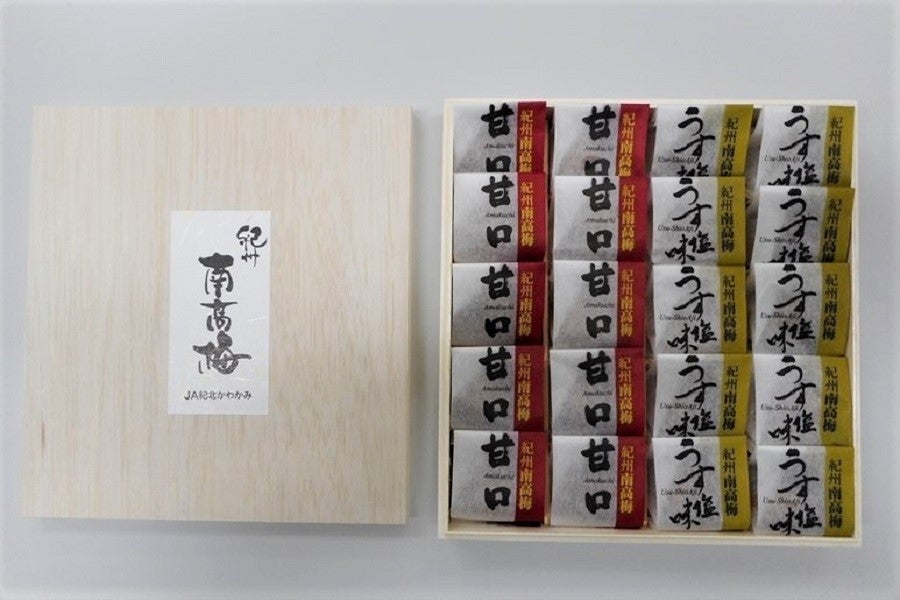 紀州
南高梅
JA紀北かわかみ
紀州南高梅
甘口
Amakuchi
紀州南高梅
甘口
Amakuchi
紀州南高梅
うす塩味
Usu-ShioAji
紀州南高梅
うす塩味
Usu-ShioAji
紀州南高梅
甘口
Amakuchi
紀州南高梅
甘口
Amakuchi
紀州南高梅
うす塩味
Usu-ShioAji
紀州南高梅
うす塩味
Usu-ShioAji
紀州南高梅
甘口
Amakuchi
紀州南高梅
甘口
Amakuchi
紀州南高梅
うす塩味
Usu-ShioAji
紀州南高梅
うす塩味
Usu-ShioAji
紀州南高梅
甘口
Amakuchi
紀州南高梅
甘口
Amakuchi
紀州南高梅
うす塩味
Usu-ShioAji
紀州南高梅
うす塩味
Usu-ShioAji
紀州南高梅
甘口
Amakuchi
紀州南高梅
甘口
Amakuchi
紀州南高梅
うす塩味
Usu-ShioAji
紀州南高梅
うす塩味
Usu-ShioAji